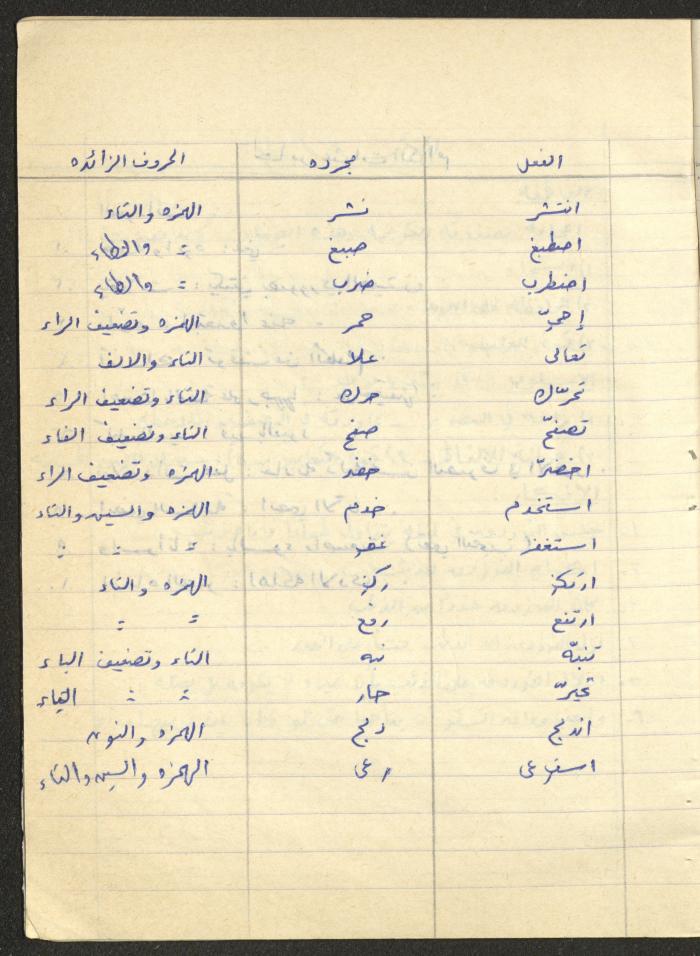 الفعل مجرده الحروف الزائده
انتشر نشر الهمزه والتاء
اصطبغ صبغ " والطاء
اضطرب ضرب " والطاء
إحمرّ حمر الهمزه وتضعيف الراء
تعالى علا التاء والالف
تحرّك حرك التاء وتضعيف الراء
تصفّح صفح التاء وتضعيف الفاء
اخضرّ خضر الهمزه وتضعيف الراء
استخدم خدم الهمزه والسين والتاء
استغفر غفر " " "
ارتكز ركز الهمزه والتاء
ارتفع رفع " "
تنبّه نبه التاء وتضعيف الباء
تحيّر حار " " الياء
اندمج دمج الهمزه والنون
استرعى رعى الهمزه والسين والتاء